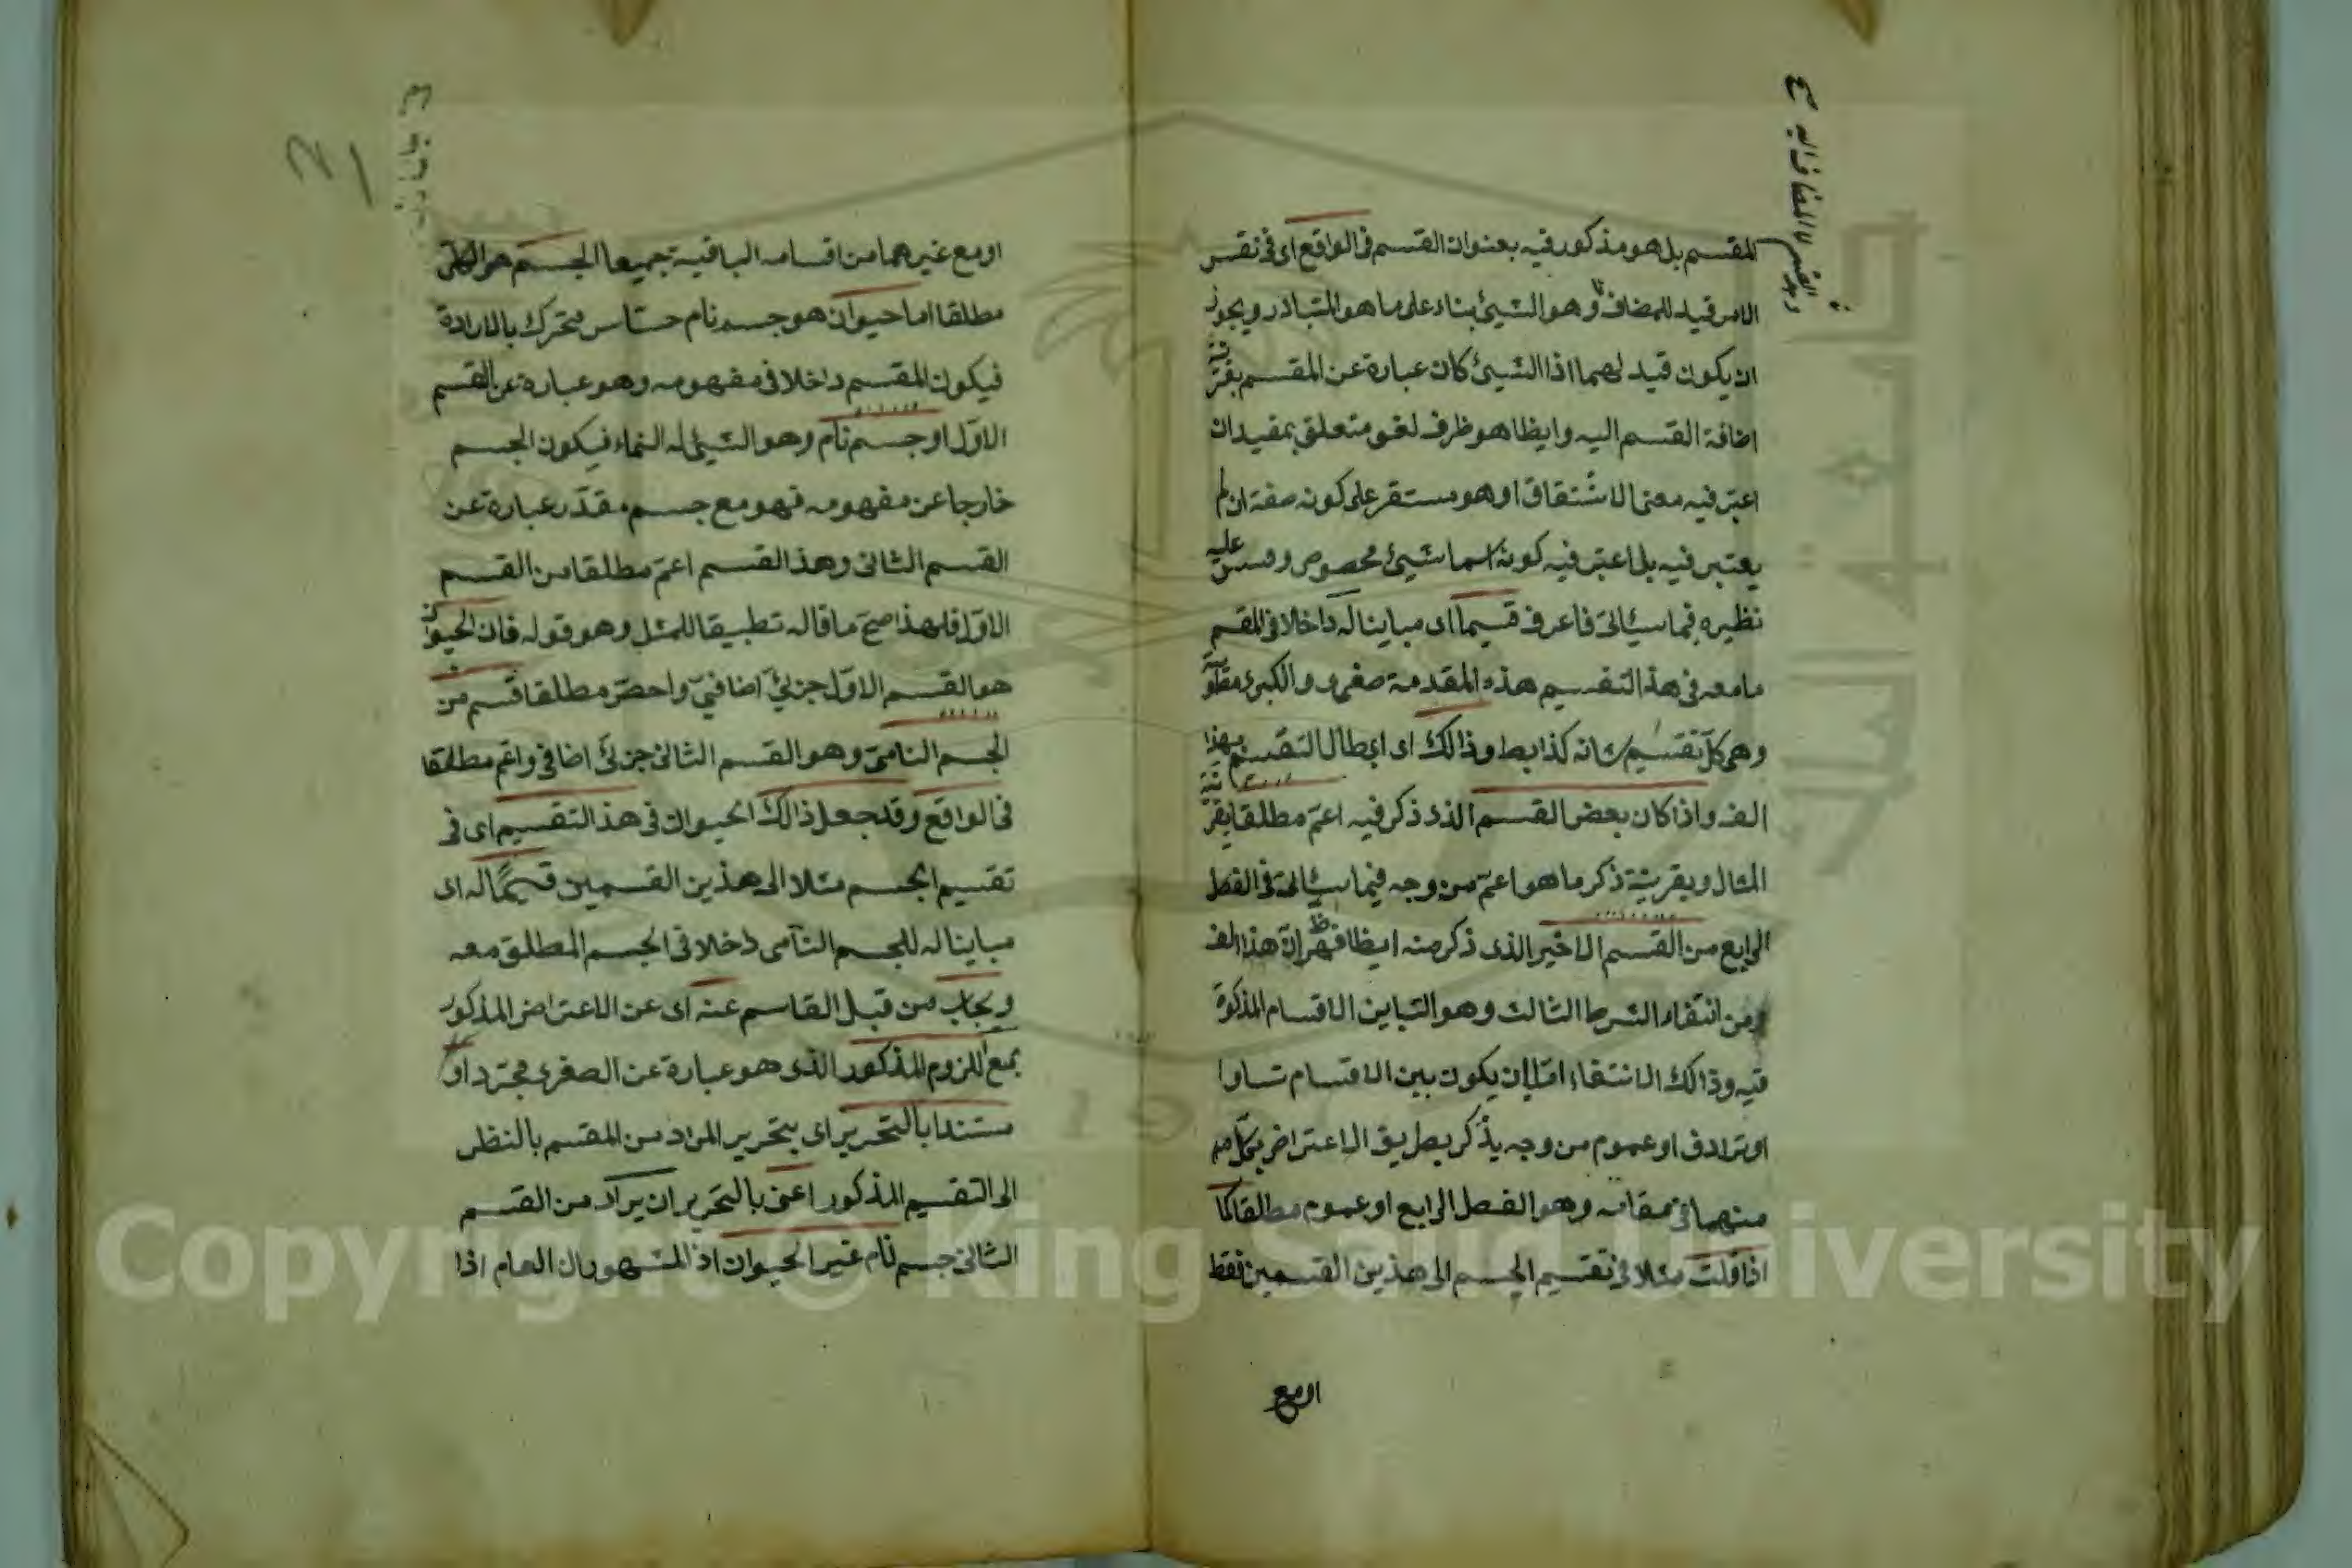 المقسم بل هو مذكور فيه بعنوان القسم فى الواقع اى فى نفس
الامر قيد للمضاف وهو الشيئ بناء على ما هو المتبادر ويجوز
ان يكون قيد لهما اذا الشيئ كان عبارة عن المقسم
اضافة القسم اليه وايظا هو ظرف لغو متعلق بمقيد ان
اعتبر فيه معنى الاشتقاق او هو مستقر على كونه صفة ان لم
يعتبر فيه بل اعتبر فيه كونه اسما شيئ مخصوص وقس عليه
نظيره فيما سيئاتى فاعرف قسيما اى مباينا له داخلا فى المقسم
ما معه فى هذا التقسيم هذه المقدمة صغرى والكبرى
وهى كل تقسيم شانه كذا بط وذالك اى ابطال التقسيم بهذا
الف واذا كان بعض القسم الذى ذكر فيه اعم مطلقا
المثال وبقرينة ذكر ما هو اعم من وجه فيما سيئاتى فى الفصل
الرابع من القسم الاخير الذى ذكر منه ايظا فظهر ان هذا الف
من انتفاء الشرط الثالث وهو التباين الاقسام المذكورة
فيه وذالك الانتفاء اما بان يكون بين الاقسام تساوا
او ترادف او عموم من وجه يذكر بطريق الاعتراض
منهما فى مقامه وهو الفصل الرابع او عموم مطلقا كما
اذا قلت مثلا فى تقسيم الجسم الى هذين القسمين فقط
او مع
او مع غيرهما من اقسامه الباقية جميعا الجسم هو
مطلقا اما حيوان هو جسم نام حساس متحرك بالارادة
فيكون المقسم داخلا فى مفهومه وهو عبارة عن القسم
الاول او جسم نام وهو الشيئ له النماء فيكون الجسم
خارجا عن مفهومه فهو مع جسم مقدر عبارة عن
القسم الثانى وهذ القسم اعم مطلقا من القسم
الاول فلهذا صح ما قاله تطبيقا للمثل وهو قوله فان الحيوان
هو القسم الاول جزئى اضافى واخص مطلقا قسم من
الجسم النامى وهو القسم الثانى جزئى اضافى واعم مطلقا
فى الواقع وقد جعل ذالك الحيوان فى هذ التقسيم اى فى
تقسيم الجسم مثلا الى هذين القسمين قسيما له اى
مباينا له للجسم النامى داخلا فى الجسم المطلق معه
ويجاب من قبل القاسم عنه اى عن الاعتراض المذكور
بمنع اللزوم المذكور الذى هو عبارة عن الصغرى مجرد او
مستندا بالتحرير اى بتحرير المراد من المقسم بالنظر
الى التقسيم المذكور اعنى بالتحرير ان يراد من القسم
الثانى جسم نام غير الحيوان اذ المشهور ان العام اذا
Copyright © King Saud University